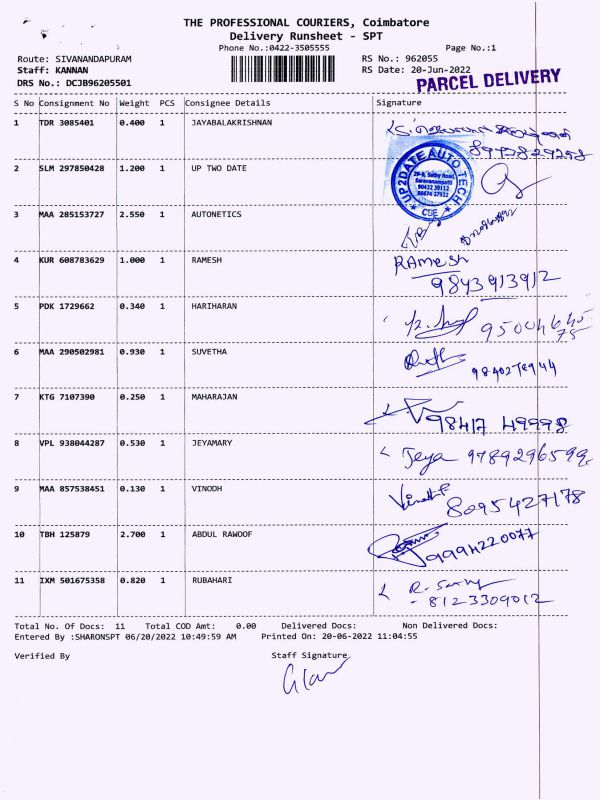 THE PROFESSIONAL COURIERS, Coimbatore
Delivery Runsheet - SPT
Phone No.:0422-3505555 Page No.:1
Route: SIVANANDAPURAM RS No.: 962055
Staff: KANNAN RS Date: 20-Jun-2022
DRS No.: DCJB96205501 PARCEL DELIVERY
S No Consignment No Weight PCS Consignee Details Signature
1 TDR 3085401 0.400 1 JAYABALAKRISHNAN
2 SLM 297850428 1.200 1 UP TWO DATE
UP2DATE AUTO TECH
Sathy Road,
Saravanampatti
CBE
3 MAA 285153727 2.550 1 AUTONETICS
4 KUR 608783629 1.000 1 RAMESH RAMesh
9843913912
5 PDK 1729662 0.340 1 HARIHARAN
6 MAA 290502981 0.930 1 SUVETHA
7 KTG 7107390 0.250 1 MAHARAJAN
98417 49998
8 VPL 938044287 0.530 1 JEYAMARY Jeya 9789296599
9 MAA 857538451 0.130 1 VINODH
8095427178
10 TBH 125879 2.700 1 ABDUL RAWOOF
9994220077
11 IXM 501675358 0.820 1 RUBAHARI
8123309012
Total No. Of Docs: 11 Total COD Amt: 0.00 Delivered Docs: Non Delivered Docs:
Entered By :SHARONSPT 06/20/2022 10:49:59 AM Printed On: 20-06-2022 11:04:55
Verified By Staff Signature